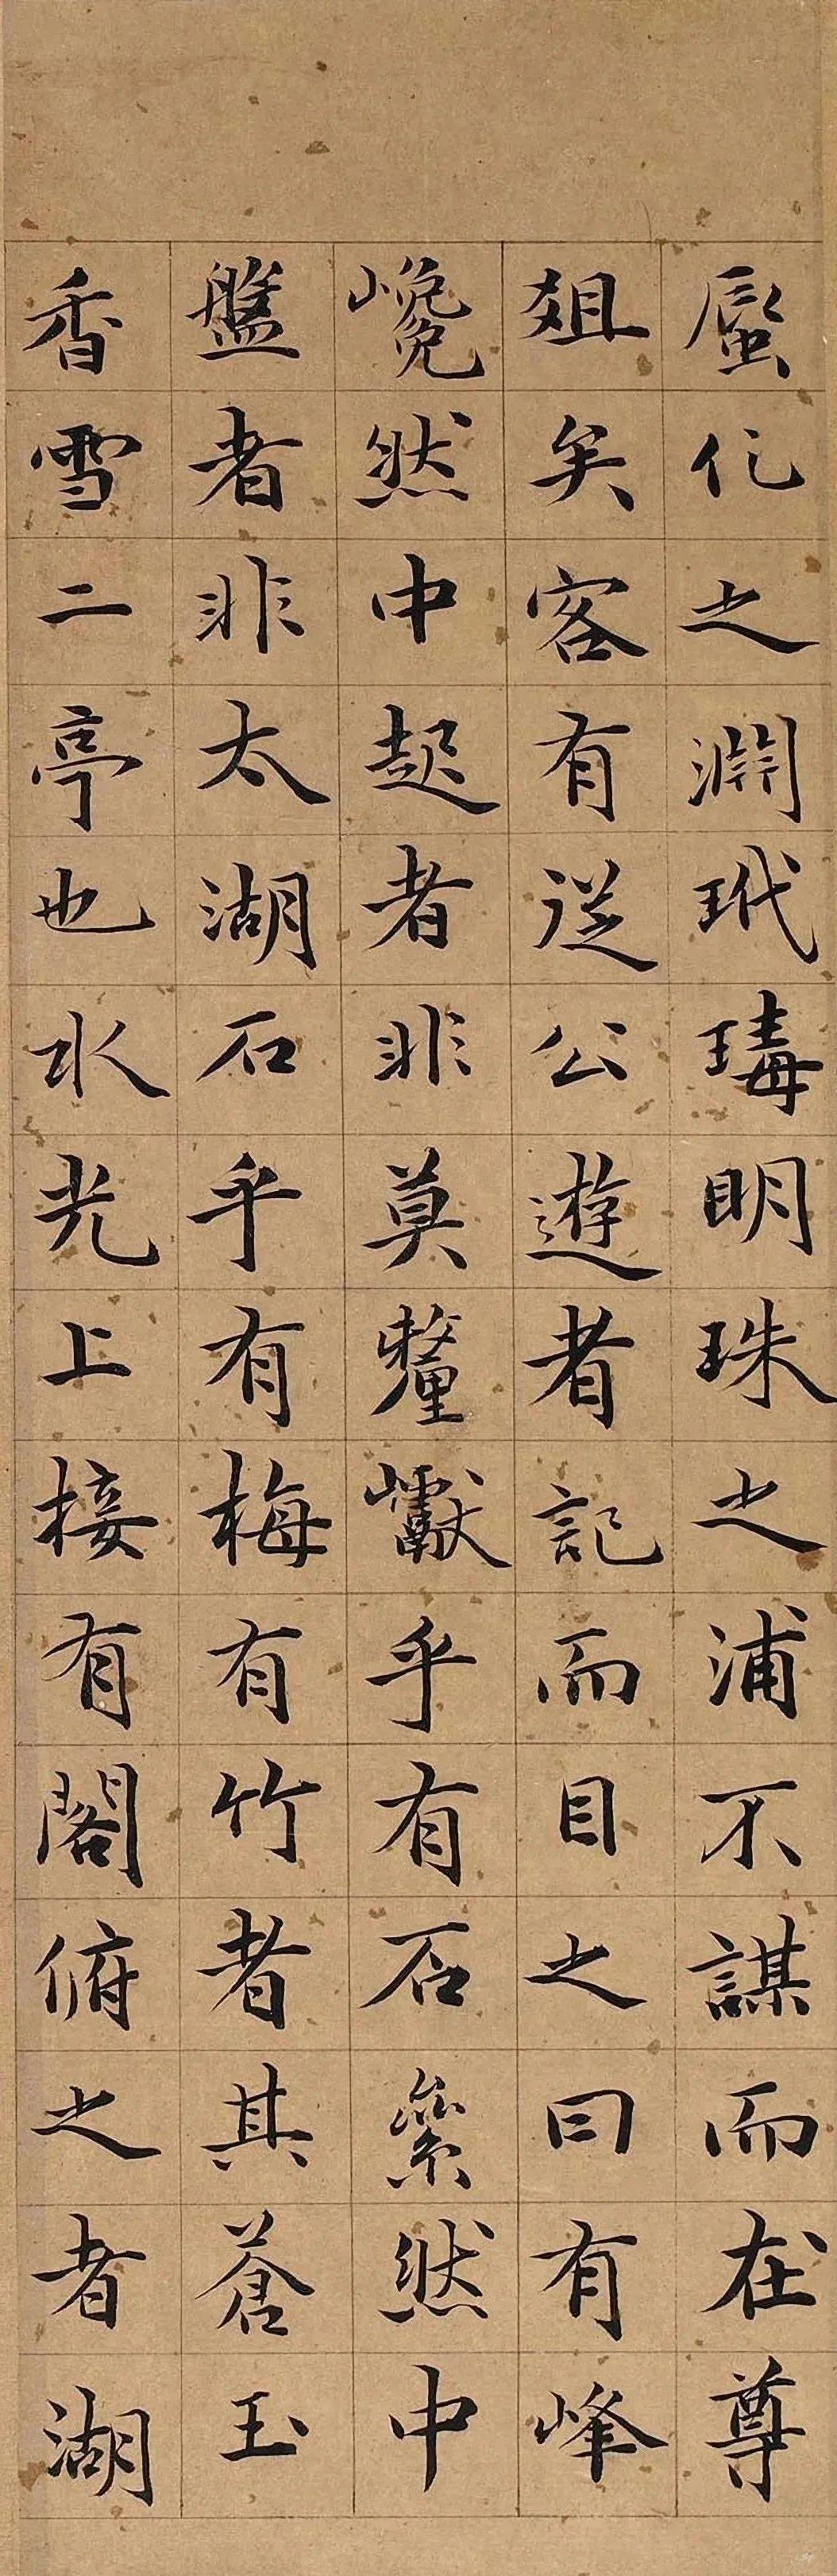 蜃化之淵玳瑇明珠之浦不謀而在尊
俎矣客有從公遊者記而目之曰有峰
巉然中起者非莫釐巘乎有石絫然中
盤者非太湖石乎有梅有竹者其蒼玉
香雪二亭也水光上接有閣俯之者湖